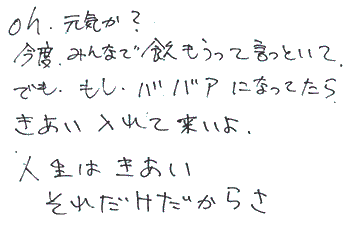 oh. 元気か?
今度.みんなで飲もうって言っといて.
でも.もし.ババアになってたら
きあい入れて来いよ.
人生はきあい
それだけだからさ